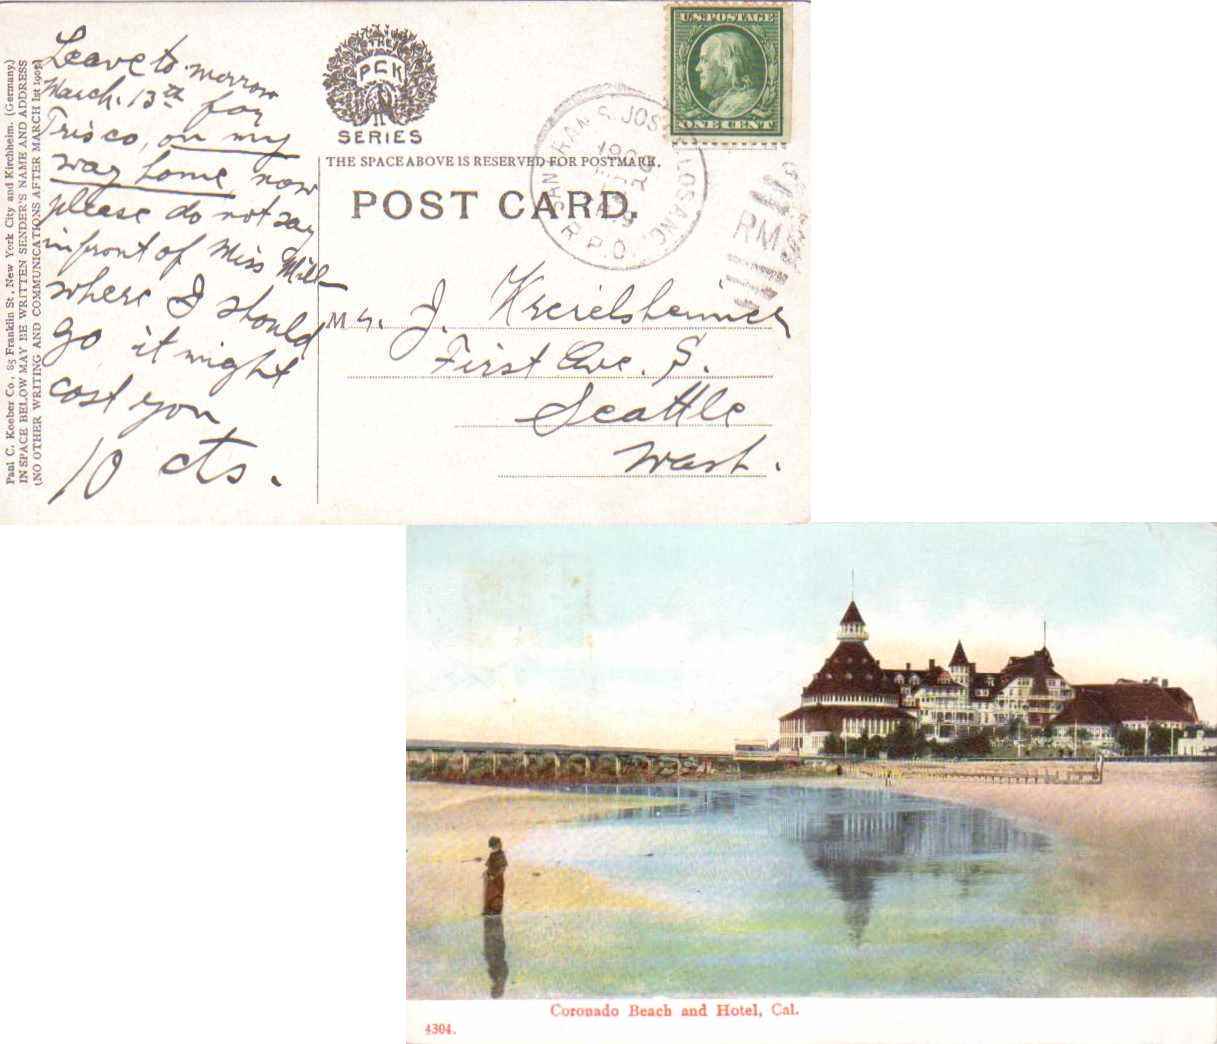 Leave to morrow
March. 13th for
Frisco, on my
way home, now
please do not say
in front of Miss Mill
where I should
go it might
cost you
10 cts.
Paul C. Koeber Co., 85 Franklin St., New York City and Kirchheim. (Germany.)
IN SPACE BELOW MAY BE WRITTEN SENDER'S NAME AND ADDRESS
(NO OTHER WRITING AND COMMUNICATIONS AFTER MARCH 1st 1907)
THE
PCK
SERIES
THE SPACE ABOVE IS RESERVED FOR POSTMARK.
POST CARD.
U.S. POSTAGE
ONE CENT
SAN FRAN S. JOSE & LOS ANG.
R.P.O.
RM
Mr. J. Kreielsheimer
First Ave. S.
Seattle
Wash.
Coronado Beach and Hotel, Cal.
4304.